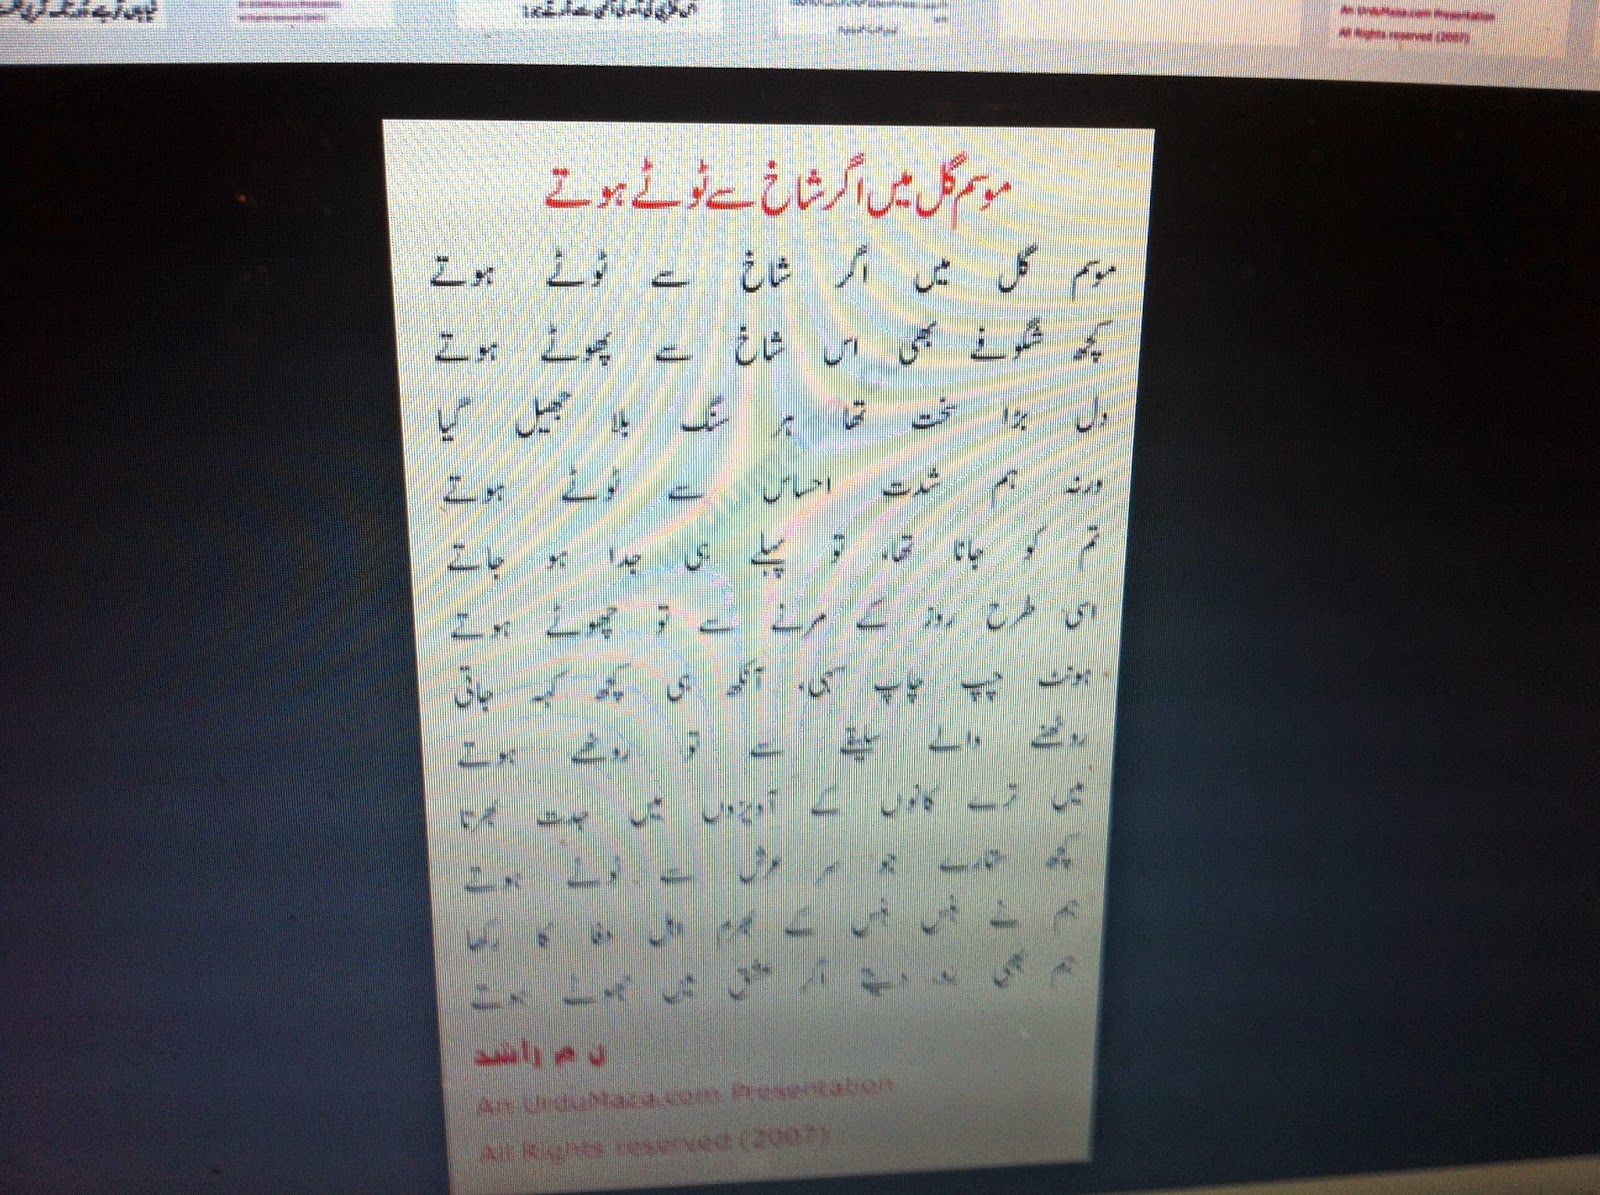 An UrduMaza.com Presentation
All Rights reserved (2007)
موسم گل میں اگر شاخ سے ٹوٹے ہوتے
موسم گل میں اگر شاخ سے ٹوٹے ہوتے
کچھ شگوفے بھی اس شاخ سے پھوٹے ہوتے
دل بڑا سخت تھا ہر سنگ بلا جھیل گیا
ورنہ ہم شدت احساس سے ٹوٹے ہوتے
تم کو جانا تھا، تو پہلے ہی جدا ہو جاتے
اسی طرح روز کے مرنے سے تو چھوٹے ہوتے
ہونٹ چپ چاپ سہی، آنکھ ہی کچھ کہہ جاتی
روٹھنے والے سلیقے سے تو روٹھے ہوتے
میں ترے کانوں کے آویزوں میں جدت بھرتا
کچھ ستارے جو سر عرش سے ٹوٹے ہوتے
ہم نے ہنس ہنس کے بھرم اہل وفا کا رکھا
ہم بھی رو دیتے اگر عشق میں جھوٹے ہوتے
ن م راشد
An UrduMaza.com Presentation
All Rights reserved (2007)